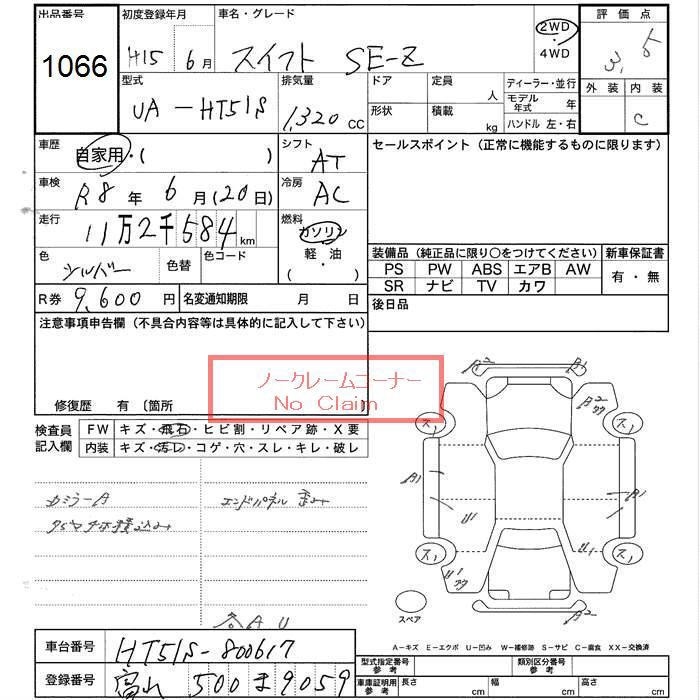 出品番号 初度登録年月 車名・グレード 評価点
1066 H15 年 6月 スイフト SE-Z 2WD・4WD 3.5
型式 排気量 ドア 定員 人 ディーラー・並行 外装 内装
UA-HT51S 1,320 CC 形状 積載 kg モデル年式 年 C
ハンドル 左・右
車歴 自家用・( ) シフト AT セールスポイント (正常に機能するものに限ります)
車検 R8年 6月(20日) 冷房 AC
走行 11万2千584km 燃料 ガソリン
軽・油
( ・ )
色 シルバー 色替 色コード 装備品 (純正品に限り〇をつけてください) 新車保証書
PS PW ABS エアB AW 有・無
SR ナビ TV カワ
R券 9,600円 名変通知期限 月 日 後日品
注意事項申告欄 (不具合内容等は具体的に記入して下さい)
ノークレームコーナー
No Claim
修復歴 有 〔箇所
検査員 FW キズ・飛石・ヒビ割・リペア跡・X要
記入欄 内装 キズ・汚レ・コゲ・穴・スレ・キレ・破レ
エンドパネル 歪み
各AU
A2 A1
A2
ス1 ス1
A1 A1
U1 U1
ス1 ス1
U1
スペア
A2
A-キズ E-エクボ U-凹み W-補修跡 S-サビ C-腐食 XX-交換済
車台番号 HT51S-800617
型式指定番号 参考 類別区分番号 参考
登録番号 500 ま 9059
車庫証明用 参考 長さ cm 幅 cm 高さ cm